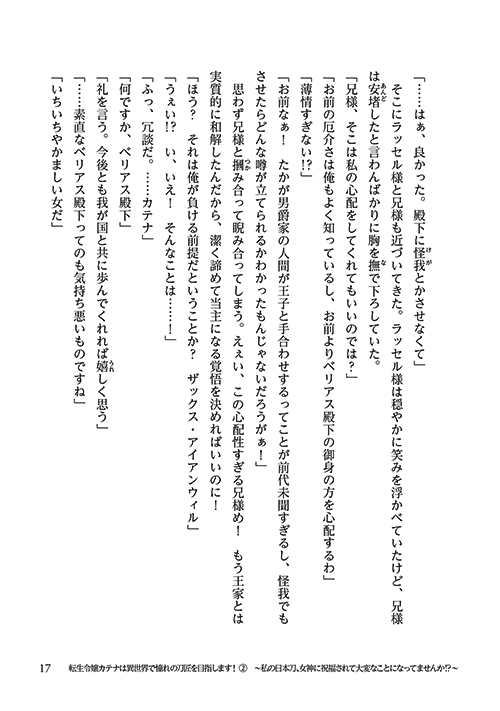 「……はぁ、良かった。殿下に怪我とかさせなくて」
　そこにラッセル様と兄様も近づいてきた。ラッセル様は穏やかに笑みを浮かべていたけど、兄様
は安堵したと言わんばかりに胸を撫で下ろしていた。
「兄様、そこは私の心配をしてくれてもいいのでは？」
「お前の厄介さは俺もよく知っているし、お前よりベリアス殿下の御身の方を心配するわ」
「薄情すぎない!?」
「お前なぁ！　たかが男爵家の人間が王子と手合わせするってことが前代未聞すぎるし、怪我でも
させたらどんな噂が立てられるかわかったもんじゃないだろうがぁ！」
　思わず兄様と摑み合って睨み合ってしまう。えぇい、この心配性すぎる兄様め！　もう王家とは
実質的に和解したんだから、潔く諦めて当主になる覚悟を決めればいいのに！
「ほう？　それは俺が負ける前提だということか？　ザックス・アイアンウィル」
「うぇい!?　い、いえ！　そんなことは……！」
「ふっ、冗談だ。……カテナ」
「何ですか、ベリアス殿下」
「礼を言う。今後とも我が国と共に歩んでくれれば嬉しく思う」
「……素直なベリアス殿下ってのも気持ち悪いものですね」
「いちいちやかましい女だ」
17　転生令嬢カテナは異世界で憧れの刀匠を目指します！ ②　～私の日本刀、女神に祝福されて大変なことになってませんか!?～